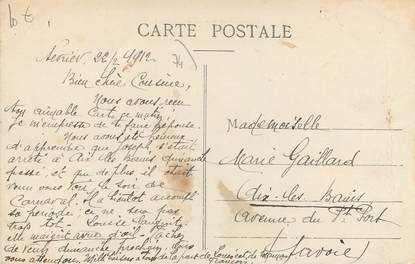 CARTE POSTALE
Février 22/2 1912
Bien chère Cousine,
Nous avons reçu
ton aimable Carte ce matin
je m'empresse de te faire réponse.
Nous avons été heureux
d'apprendre que Joseph s'était
arrêté à Aix les Bains dimanche
passé, et que de plus il était
venu vous voir le soir de
Carnaval. Il a bientôt accompli
sa période; ce ne sera pas
trop tôt. Louise
elle maigrit
de venir dimanche prochain,
vous attendons. Mille baisers à tous de la part de
Mademoiselle
Marie Gaillard
Aix-les-Bains
Avenue du Pt Port
(Savoie)